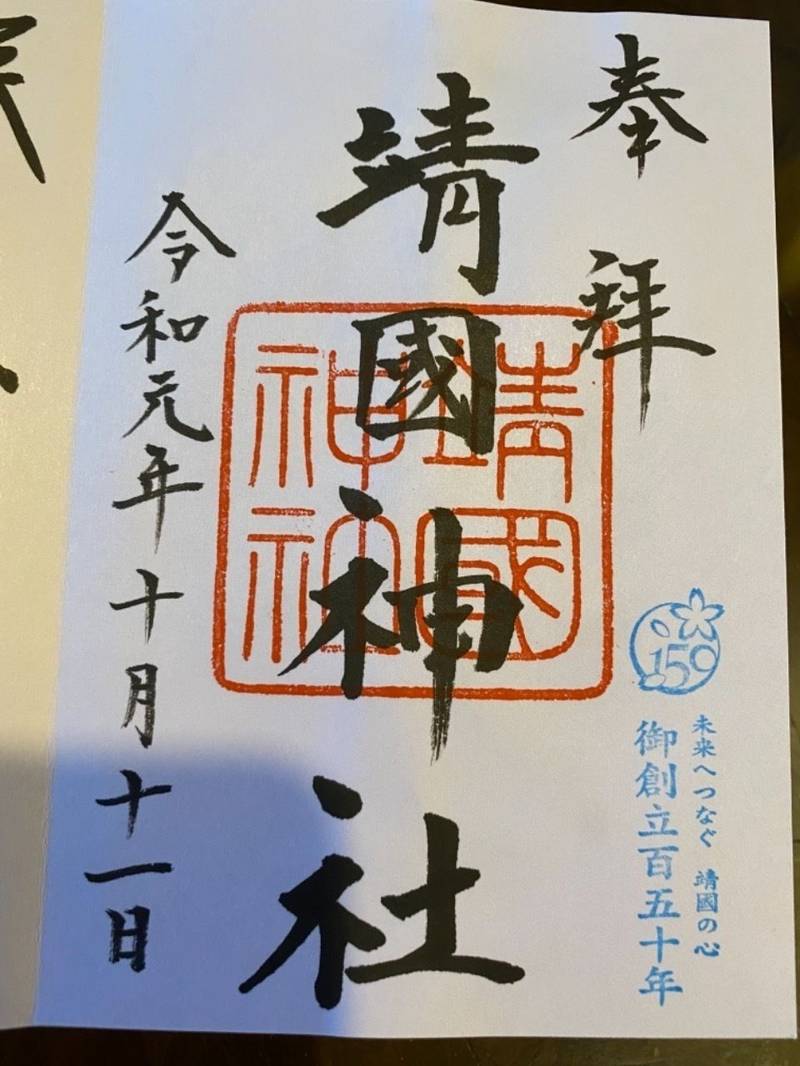 奉拝
靖國神社
靖國
神社
150
未来へつなぐ 靖國の心
御創立百五十年
令和元年十月十一日